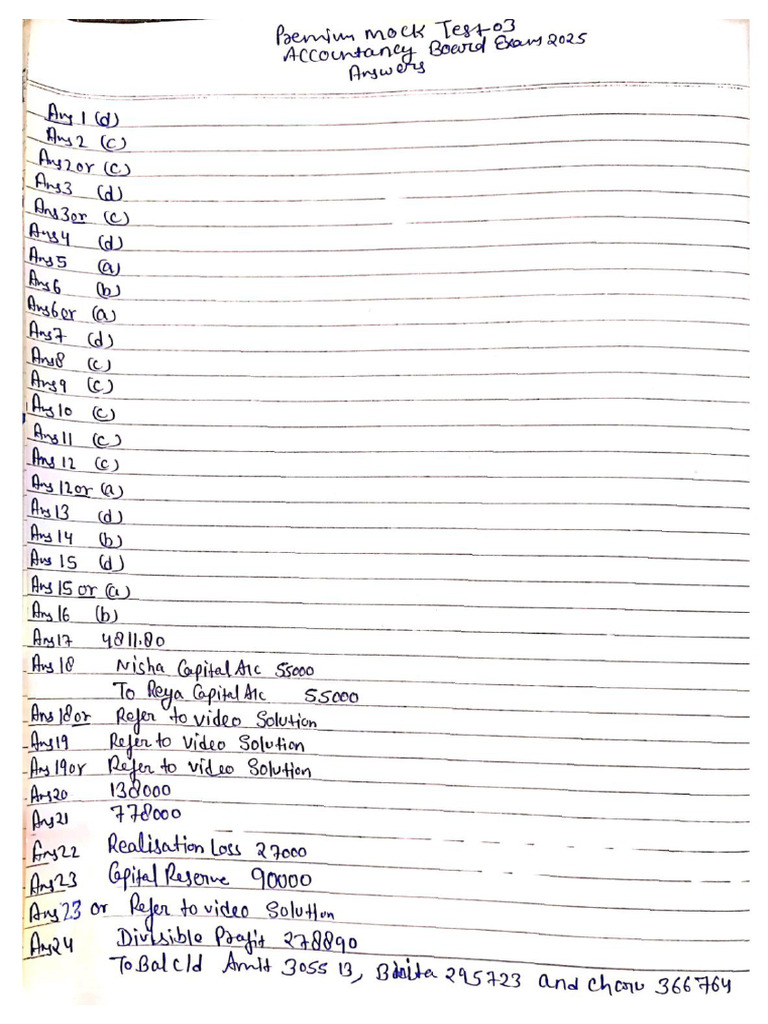 Premium Mock Test-03
Accountancy Board Exam 2025
Answers
Ans 1 (d)
Ans 2 (c)
Ans 2 or (c)
Ans 3 (d)
Ans 3 or (c)
Ans 4 (d)
Ans 5 (a)
Ans 6 (b)
Ans 6 or (a)
Ans 7 (d)
Ans 8 (c)
Ans 9 (c)
Ans 10 (c)
Ans 11 (c)
Ans 12 (c)
Ans 12 or (a)
Ans 13 (d)
Ans 14 (b)
Ans 15 (d)
Ans 15 or (a)
Ans 16 (b)
Ans 17 4811.80
Ans 18 Nisha Capital A/c 55000
To Reya Capital A/c 55000
Ans 18 or Refer to video Solution
Ans 19 Refer to video Solution
Ans 19 or Refer to video Solution
Ans 20 138000
Ans 21 778000
Ans 22 Realisation Loss 27000
Ans 23 Capital Reserve 90000
Ans 23 or Refer to video Solution
Ans 24 Divisible Profit 278890
To Bal c/d Amit 305513, Babita 295723 and Charu 366764